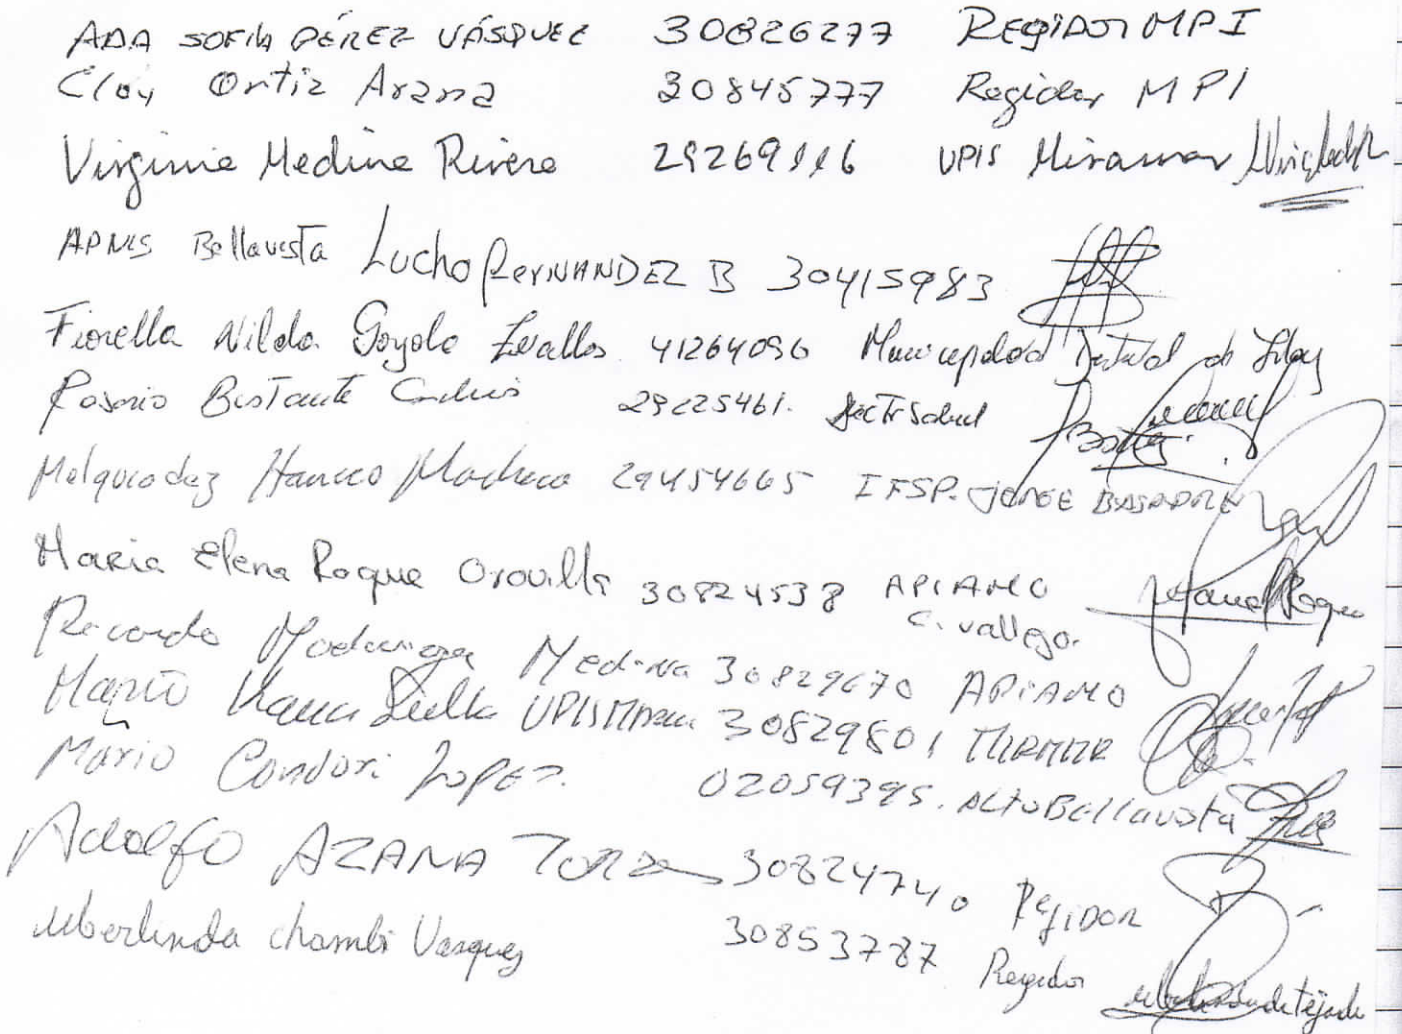 ADA SOFIA PÉREZ VÁSQUEZ 30826277 REGIDOR MPI
Eloy Ortiz Arana 30845777 Regidor MPI
Virginia Medina Rivera 29269116 UPIS Miramar
Bellavista Lucho FERNANDEZ B 30415983
Fiorella Nilda Goyola Zevallos 41264096 Municipalidad Distrital de
Rosario Bustante 29225461. Salud
Melquiadez Hancco Machaca 29454665 IFSP. JORGE BASADRE
Maria Elena Roque Orovilla 30824538 APIAMO
C. Vallejo.
Ricardo Madariaga Medina 30829670 APIAMO
Mario 30829801 MIRAMAR
Mario Condori Lopez. 02059395. Alto Bellavista
Adolfo AZANA 30824740 REGIDOR
Uberlinda Chambi Vasquez 30853787 Regidor